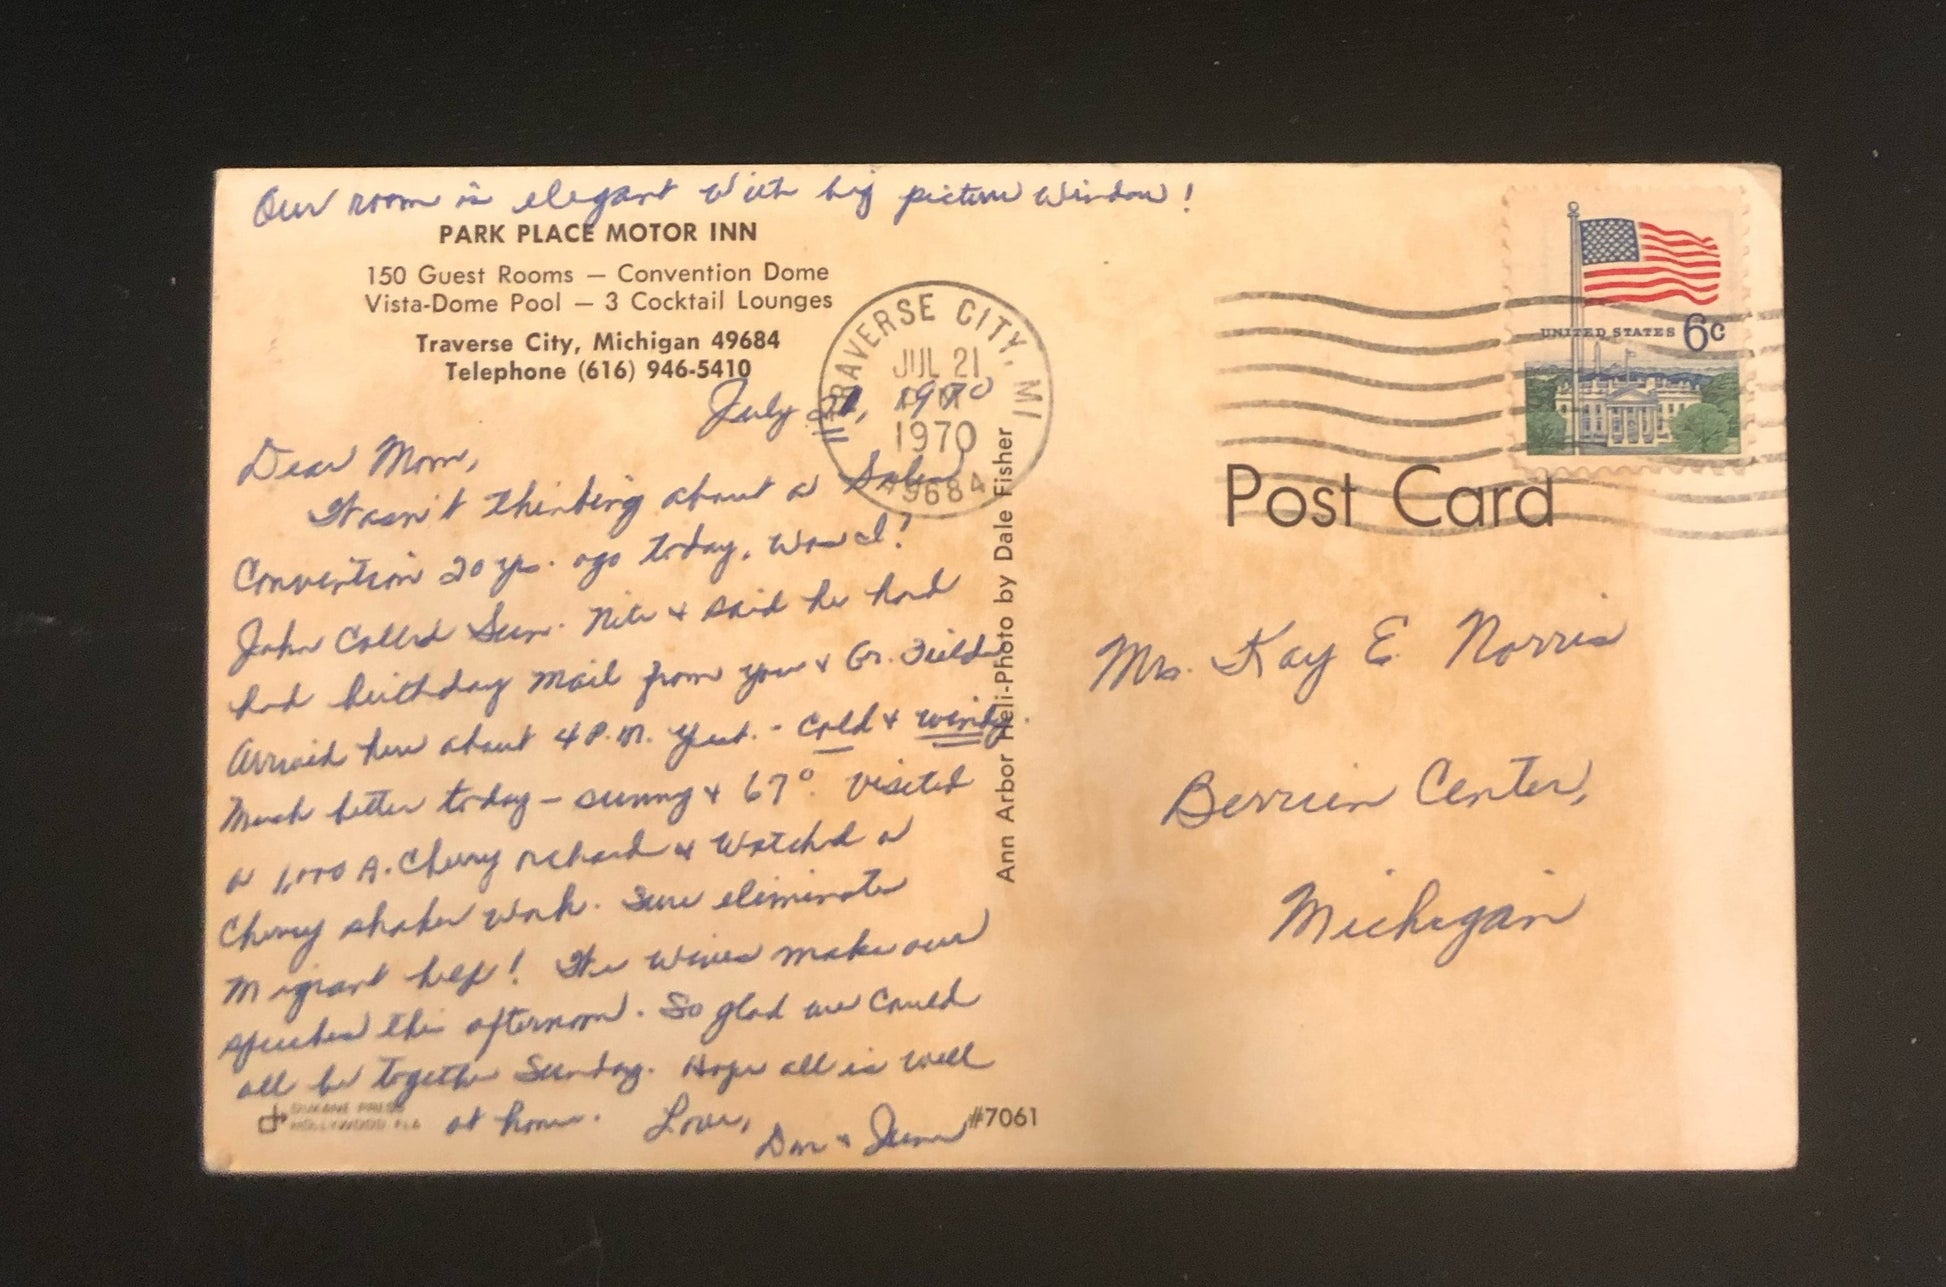 Our room is elegant with big picture window!
PARK PLACE MOTOR INN
150 Guest Rooms — Convention Dome
Vista-Dome Pool — 3 Cocktail Lounges
Traverse City, Michigan 49684
Telephone (616) 946-5410
TRAVERSE CITY, MI
JUL 21
PM
1970
49684
July 21, 1970
Dear Mom,
Wasn't thinking about a Salem
Convention 20 yrs. ago today, was I?
John called Sun. Nite & said he had
had birthday mail from you & Gr. Fields
Arrived here about 4 P.M. yest. - cold & windy.
Much better today - sunny & 67°. Visited
a 1,000 A. Cherry orchard & watched a
Cherry shaker work. Sure eliminates
Migrant help! The wives make our
speeches this afternoon. So glad we could
all be together Sunday. Hope all is well
at home. Love,
Don & June
DUKANE PRESS
HOLLYWOOD FLA
#7061
Ann Arbor Heli-Photo by Dale Fisher
UNITED STATES 6c
Post Card
Mrs. Kay E. Norris
Berrien Center,
Michigan